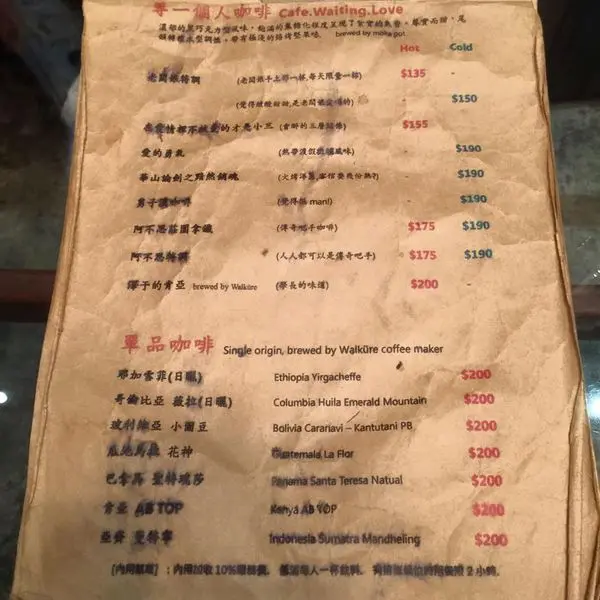 等一個人咖啡 Cafe.Waiting.Love
brewed by moka pot
Hot Cold
老闆娘特調 (老闆娘手上那一杯,每天限量一杯) $135
$150
$155
愛的勇氣 (熱帶渡假風味) $190
華山論劍之黯然銷魂 $190
男子漢咖啡 (覺得很 man!) $190
阿不思莊園拿鐵 (傳奇吧手咖啡) $175 $190
阿不思特調 (人人都可以是傳奇吧手) $175 $190
澤于的肯亞 brewed by Walküre (學長的味道) $200
單品咖啡 Single origin, brewed by Walküre coffee maker
耶加雪菲(日曬) Ethiopia Yirgacheffe $200
哥倫比亞 薇拉(日曬) Columbia Huila Emerald Mountain $200
玻利維亞 小圓豆 Bolivia Caranavi – Kantutani PB $200
瓜地馬拉 花神 Guatemala La Flor $200
巴拿馬 聖特瑞莎 Panama Santa Teresa Natual $200
肯亞 AB TOP Kenya AB TOP $200
亞齊 曼特寧 Indonesia Sumatra Mandheling $200
內用加收10%服務費. 低消每人一杯飲料.